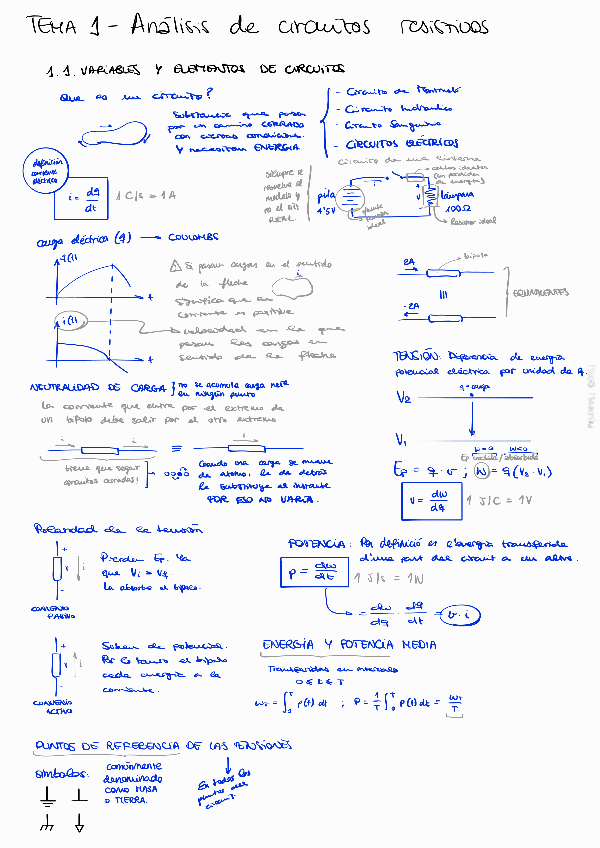 TEMA 1 - Análisis de circuitos resistivos
1.1. VARIABLES Y ELEMENTOS DE CIRCUITOS
Que es un circuito?
Substancia que pasa
por un camino CERRADO
con ciertas condiciones
Y necesitan ENERGIA
- Circuito de Fórmula 1
- Circuito hidráulico
- Circuito Sanguíneo
- CIRCUITOS ELÉCTRICOS
Circuito de una linterna
definición
corriente
eléctrica
i = dq/dt
1 C/s = 1A
Siempre se
resuelve el
modelo y
no el ckt
REAL.
pila
4'5V
fuente
tensión
ideal
cables ideales
(sin perdidas
de energía)
lámpara
100Ω
Resistor ideal
carga eléctrica (q) → COULOMBS
q(t)
t
i(t)
t
⚠ Si pasan cargas en el sentido
de la flecha
significa que la
corriente es positiva
velocidad en la que
pasan las cargas en
sentido de la flecha
i
2A
bipolo
-2A
EQUIVALENTES
NEUTRALIDAD DE CARGA } no se acumula carga neta
en ningún punto
La corriente que entra por el extremo de
un bipolo debe salir por el otro extremo
i
i
≡
i
tiene que seguir
circuitos cerrados!
Cuando una carga se mueve
de átomo, la de detrás
la substituye al instante
POR ESO NO VARÍA.
TENSIÓN: Diferencia de energía
potencial eléctrica por unidad de q.
V2
q = carga
V1
Ep = q · v ; W = q (V2 - V1)
v = dw/dq
1 J/C = 1V
Polaridad de la tensión
+
v
i
-
Pierden Ep. Ya
La absorbe el bipolo.
CONVENIO
PASIVO
+
v
i
-
Suben de potencial.
Por lo tanto el bipolo
cede energia a la
corriente.
CONVENIO
ACTIVO
POTENCIA: Per definició es l'energia transferida
d'una part del circuit a un altre.
P = dw/dt
1 J/s = 1W
= dw/dq · dq/dt = v · i
ENERGÍA Y POTENCIA MEDIA
Transferidas en intervalo
0 ≤ t ≤ T
wT = ∫₀ᵀ p(t) dt ; P = 1/T ∫₀ᵀ p(t) dt = wT/T
PUNTOS DE REFERENCIA DE LAS TENSIONES
símbolos:
comúnmente
denominado
como MASA
o TIERRA.
En todos los
puntos del
circuit